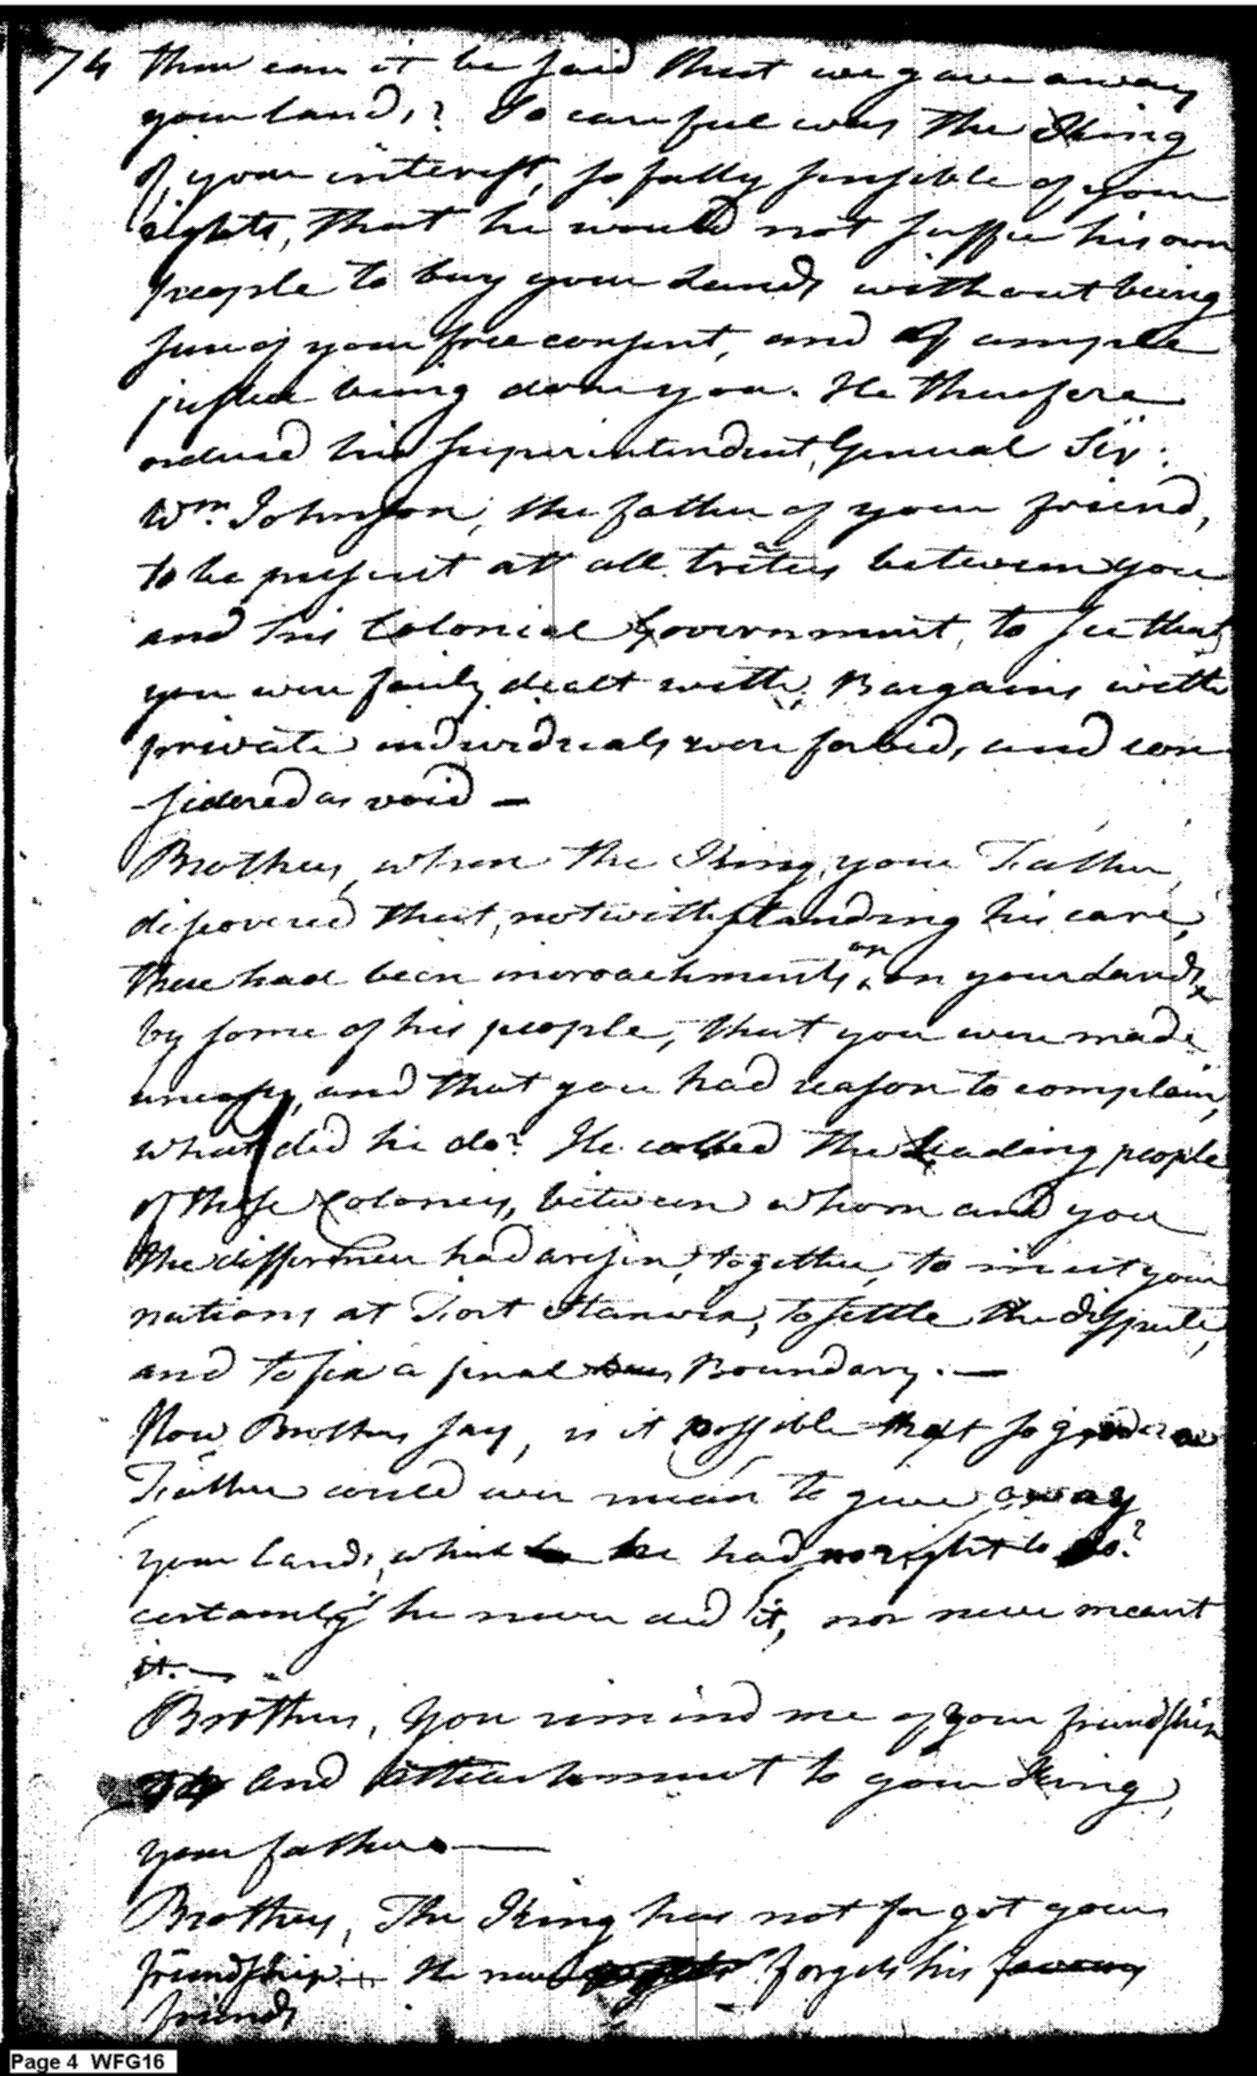 74 then can it be said that we gave away
your lands? So careful was the King
of your interest, so fully sensible of your
rights, that he would not suffer his own
people to buy your Lands without being
sure of your free consent, and of ample
justice being done you. He therefore
ordered his Superintendent General Sir
Wm. Johnson, the father of your friend,
to be present at all treaties between you
and his Colonial Government, to see that
you were fairly dealt with, Bargains with
private individuals were forbid, and con
-sidered as void —
Brothers, when the King, your Father,
discovered that, notwithstanding his care,
there had been incroachments on your Lands
by some of his people, that you were made
uneasy, and that you had reason to complain,
what did he do? He called the leading people
of those Colonies, between whom and you
the difference had arisen, together, to meet your
nations at Fort Stanwix, to settle the dispute,
and to fix a final Boundary. —
Now Brothers say, is it possible that so good a
Father could ever mean to give away
your lands, which he had no right to do?
certainly he never did it, nor never meant
it. —
Brothers, You remind me of your friendship
and attachment to your King,
your father —
Brothers, The King has not forgot your
friendship He never forgets his
friends
Page 4 WFG16